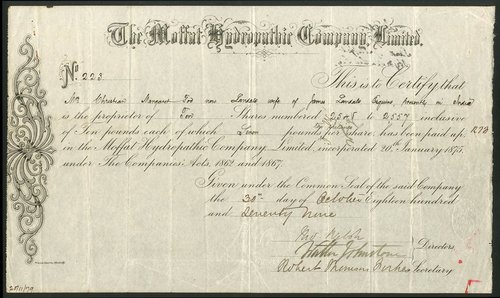 The Moffat Hydropathic Company, Limited.
No. 223
This is to Certify that
Christian Margaret Tod now wife of James Esquire, presently in India
is the proprietor of Ten Shares numbered 2548 to 2557 inclusive
of Ten pounds each of which pounds share has been paid up,
in the Moffat Hydropathic Company Limited, incorporated 20th January 1875,
under The Companies Acts, 1862 and 1867.
Given under the Common Seal of the said Company
the 30th day of October Eighteen hundred
and Seventy nine
Johnstone Directors,
Robert Secretary